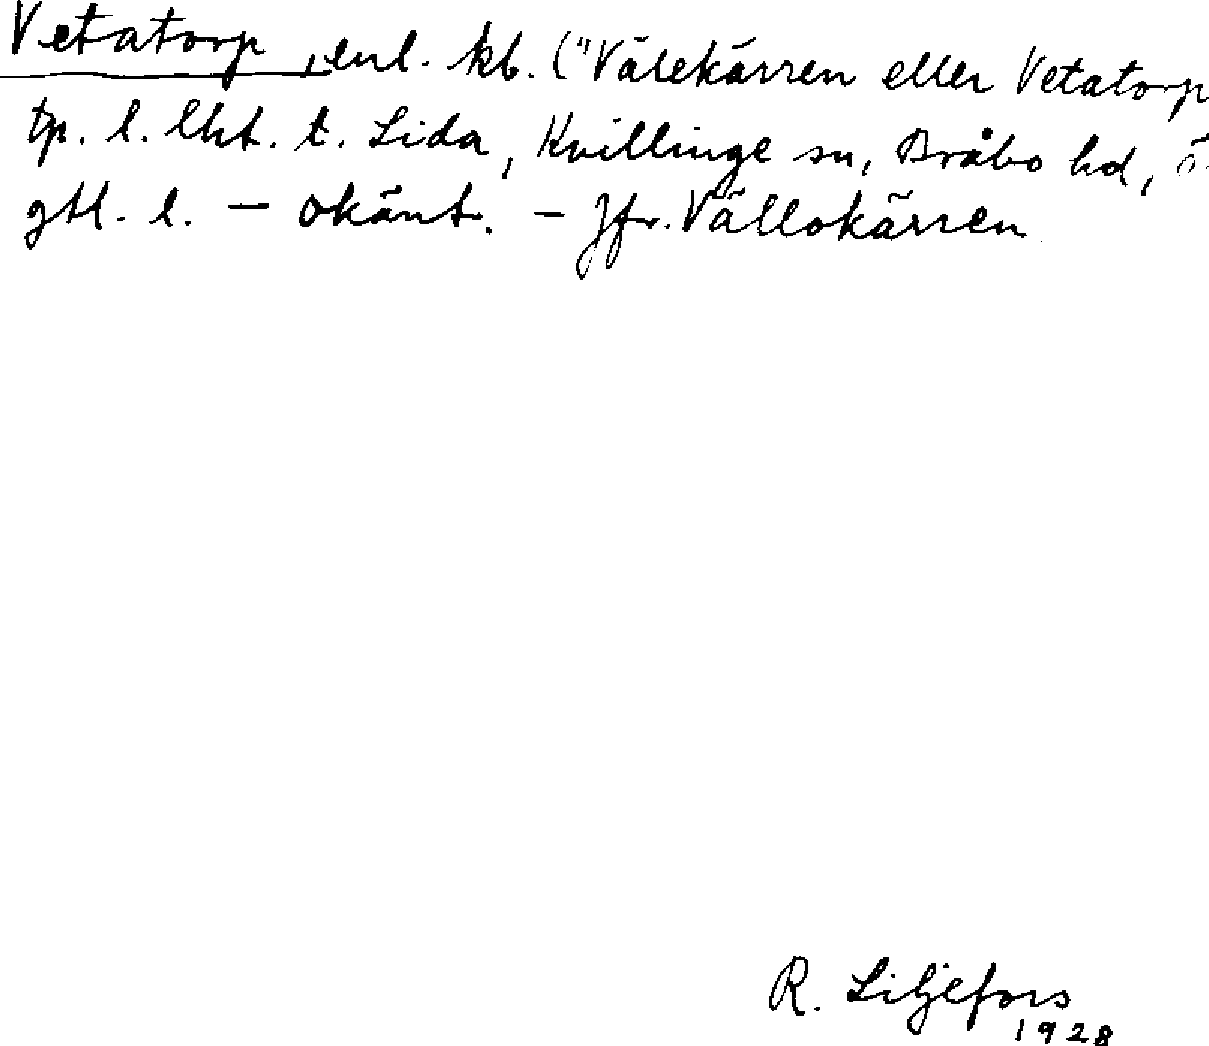 Vetatorp, enl. kb. ("Välekärren eller Vetatorp
tp. l. lht. t. Lida, Kvillinge sn, Bråbo hd, ö.
gtl. l. — okänt. — Jfr. Vällokärren
R. Liljefors
1928